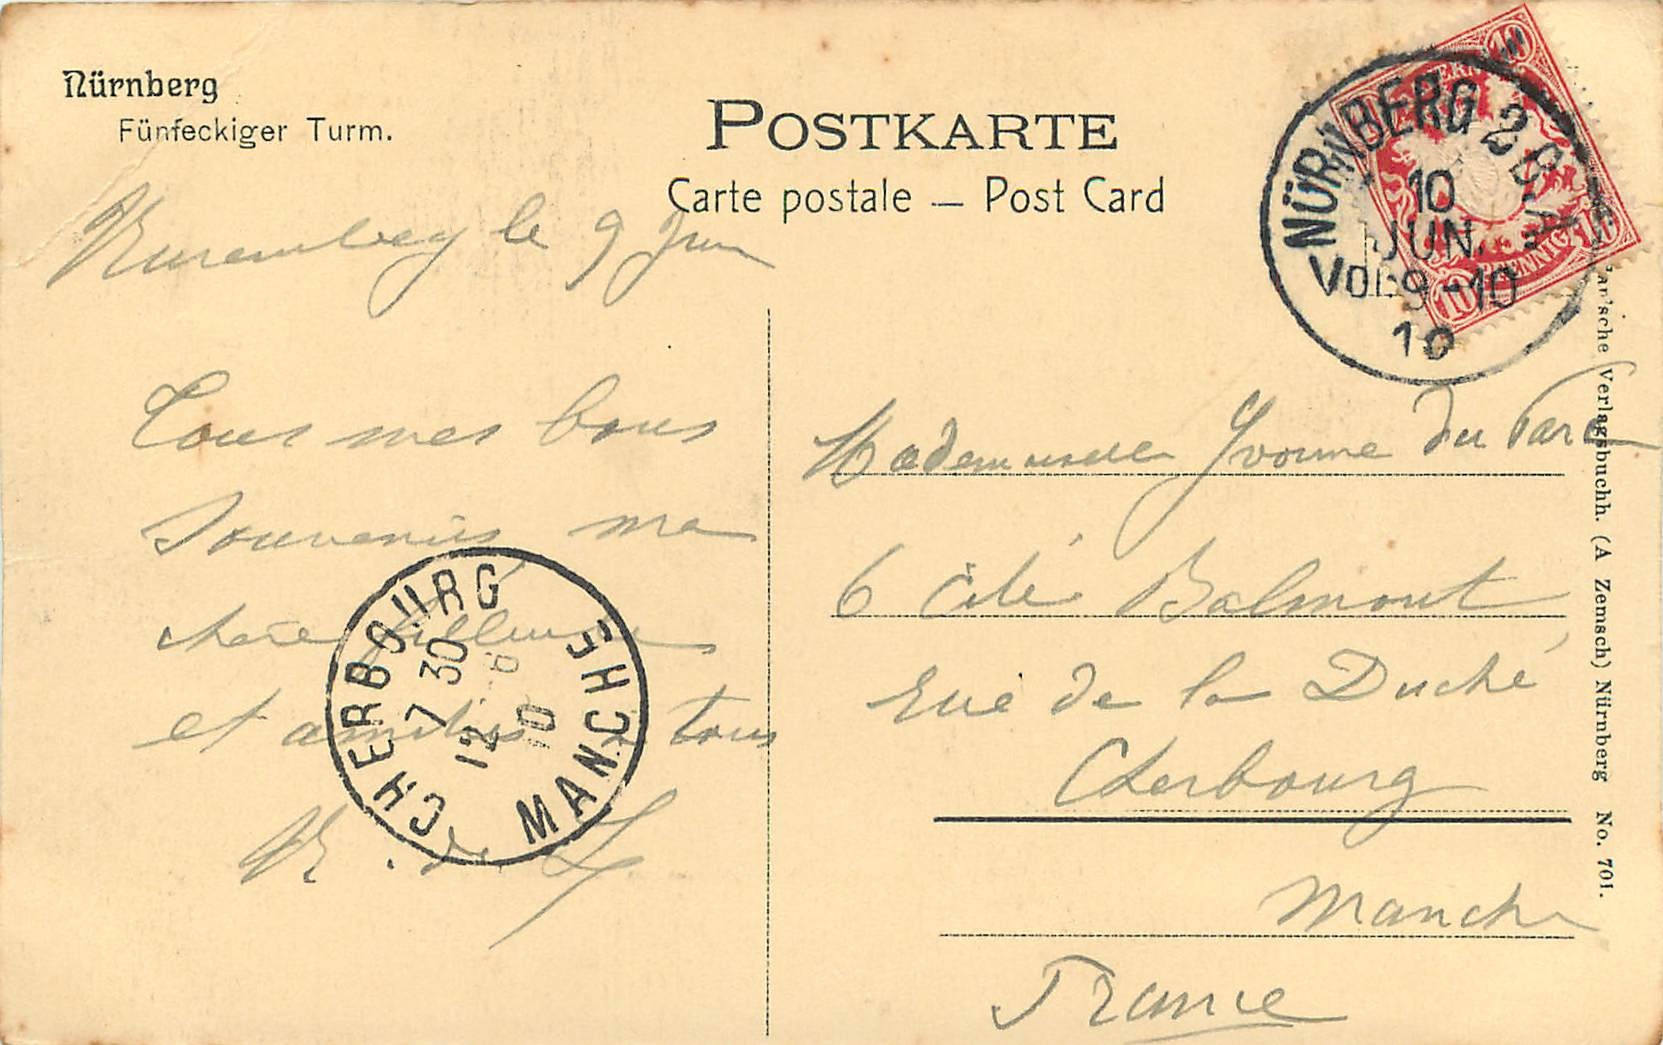 Nürnberg
Fünfeckiger Turm.
POSTKARTE
Carte postale — Post Card
NÜRNBERG 2
10
JUN.
Vor 9-10
10
10 PFENNIG 10
Nuremberg le 9 Juin
Tous mes bons
souvenirs ma
chère filleule
et amitiés à tous
CHERBOURG
7 30
12 - 6
10
MANCHE
Mademoiselle Yvonne du Parc
6 Cité Balmont
Rue de la Duché
Cherbourg
Manche
France
Verlagsbuchh. (A Zemsch) Nürnberg No. 701.